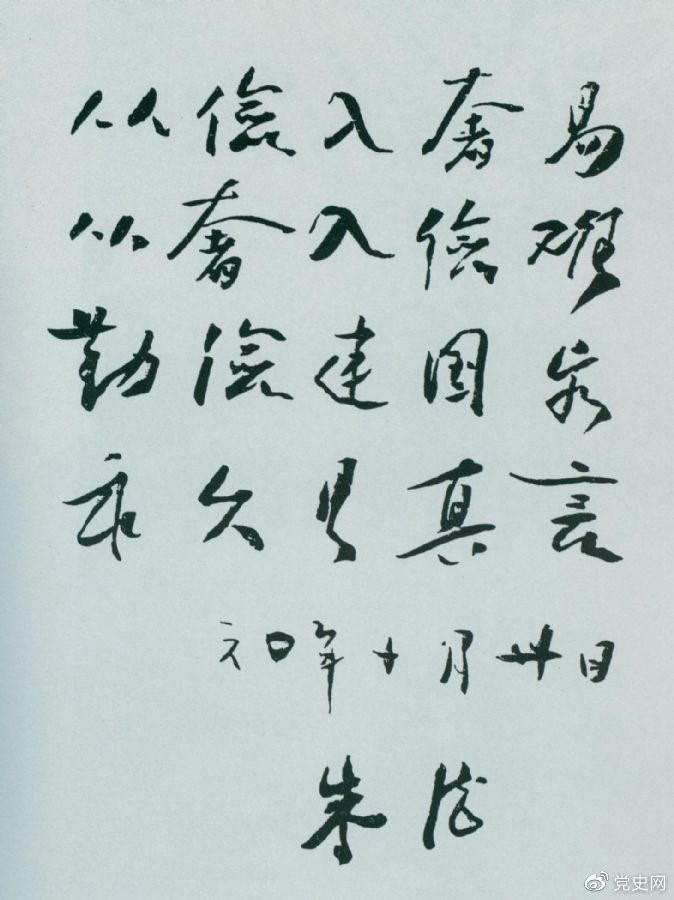 从俭入奢易
从奢入俭难
勤俭建国家
永久是真言
六〇年十月卅日
朱德
党史网